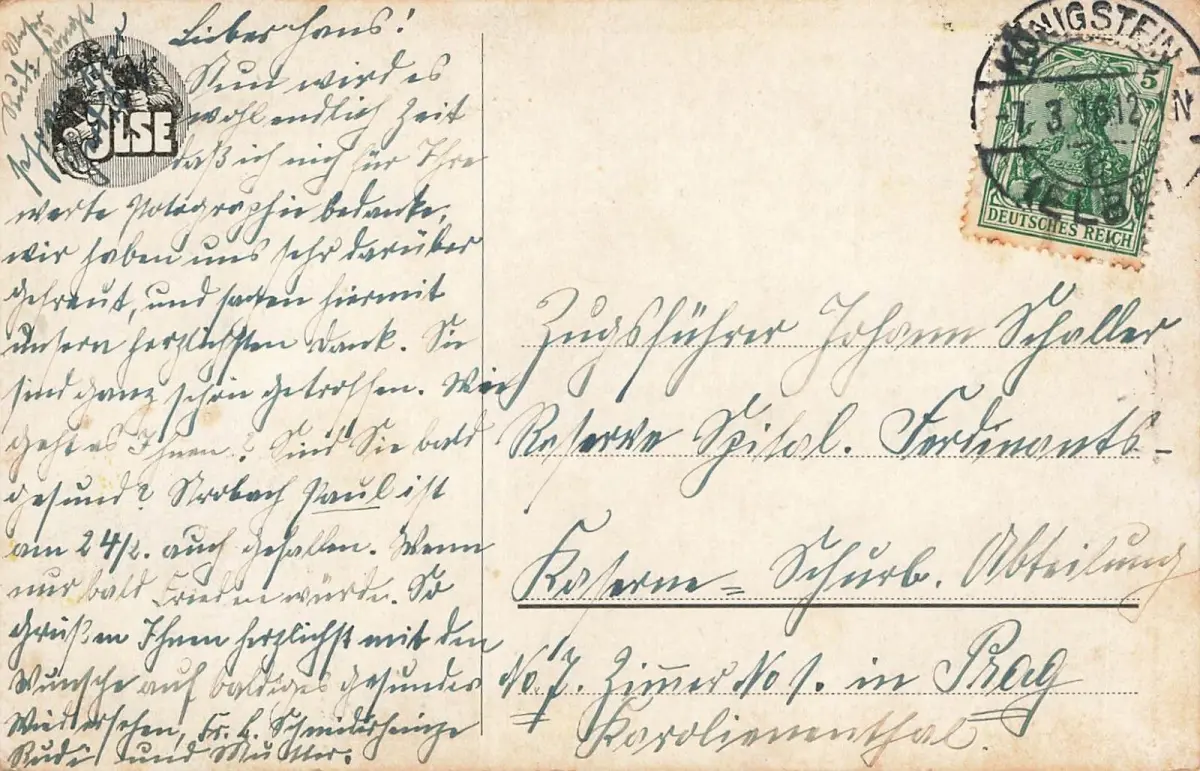 Lieber Hans!
Nun wird es
wohl endlich Zeit
daß ich mich für Ihre
werte Potographie bedanke,
wir haben uns sehr darüber
gefreut, und sagen hiermit
unsern herzlichsten Dank. Sie
sind ganz schön getroffen. Wie
geht es Ihnen? Sind Sie bald
gesund? Strobach Paul ist
am 24/2. auch gefallen. Wenn
nur bald Frieden würde. So
grüßen Ihnen herzlichst mit den
Wunsche auf baldiges gesundes
Wiedersehen, Fr. L.
Rudi und Mutter.
JLSE
KÖNIGSTEIN
-7.3.16.12 N
(ELBE)
5
DEUTSCHES REICH
Zugsführer Johann Schaller
Reserve Spital. Ferdinants-
Kaserne = Schurb. Abteilung
No. 7. Zimmer No 1. in Prag
Karolienenthal.